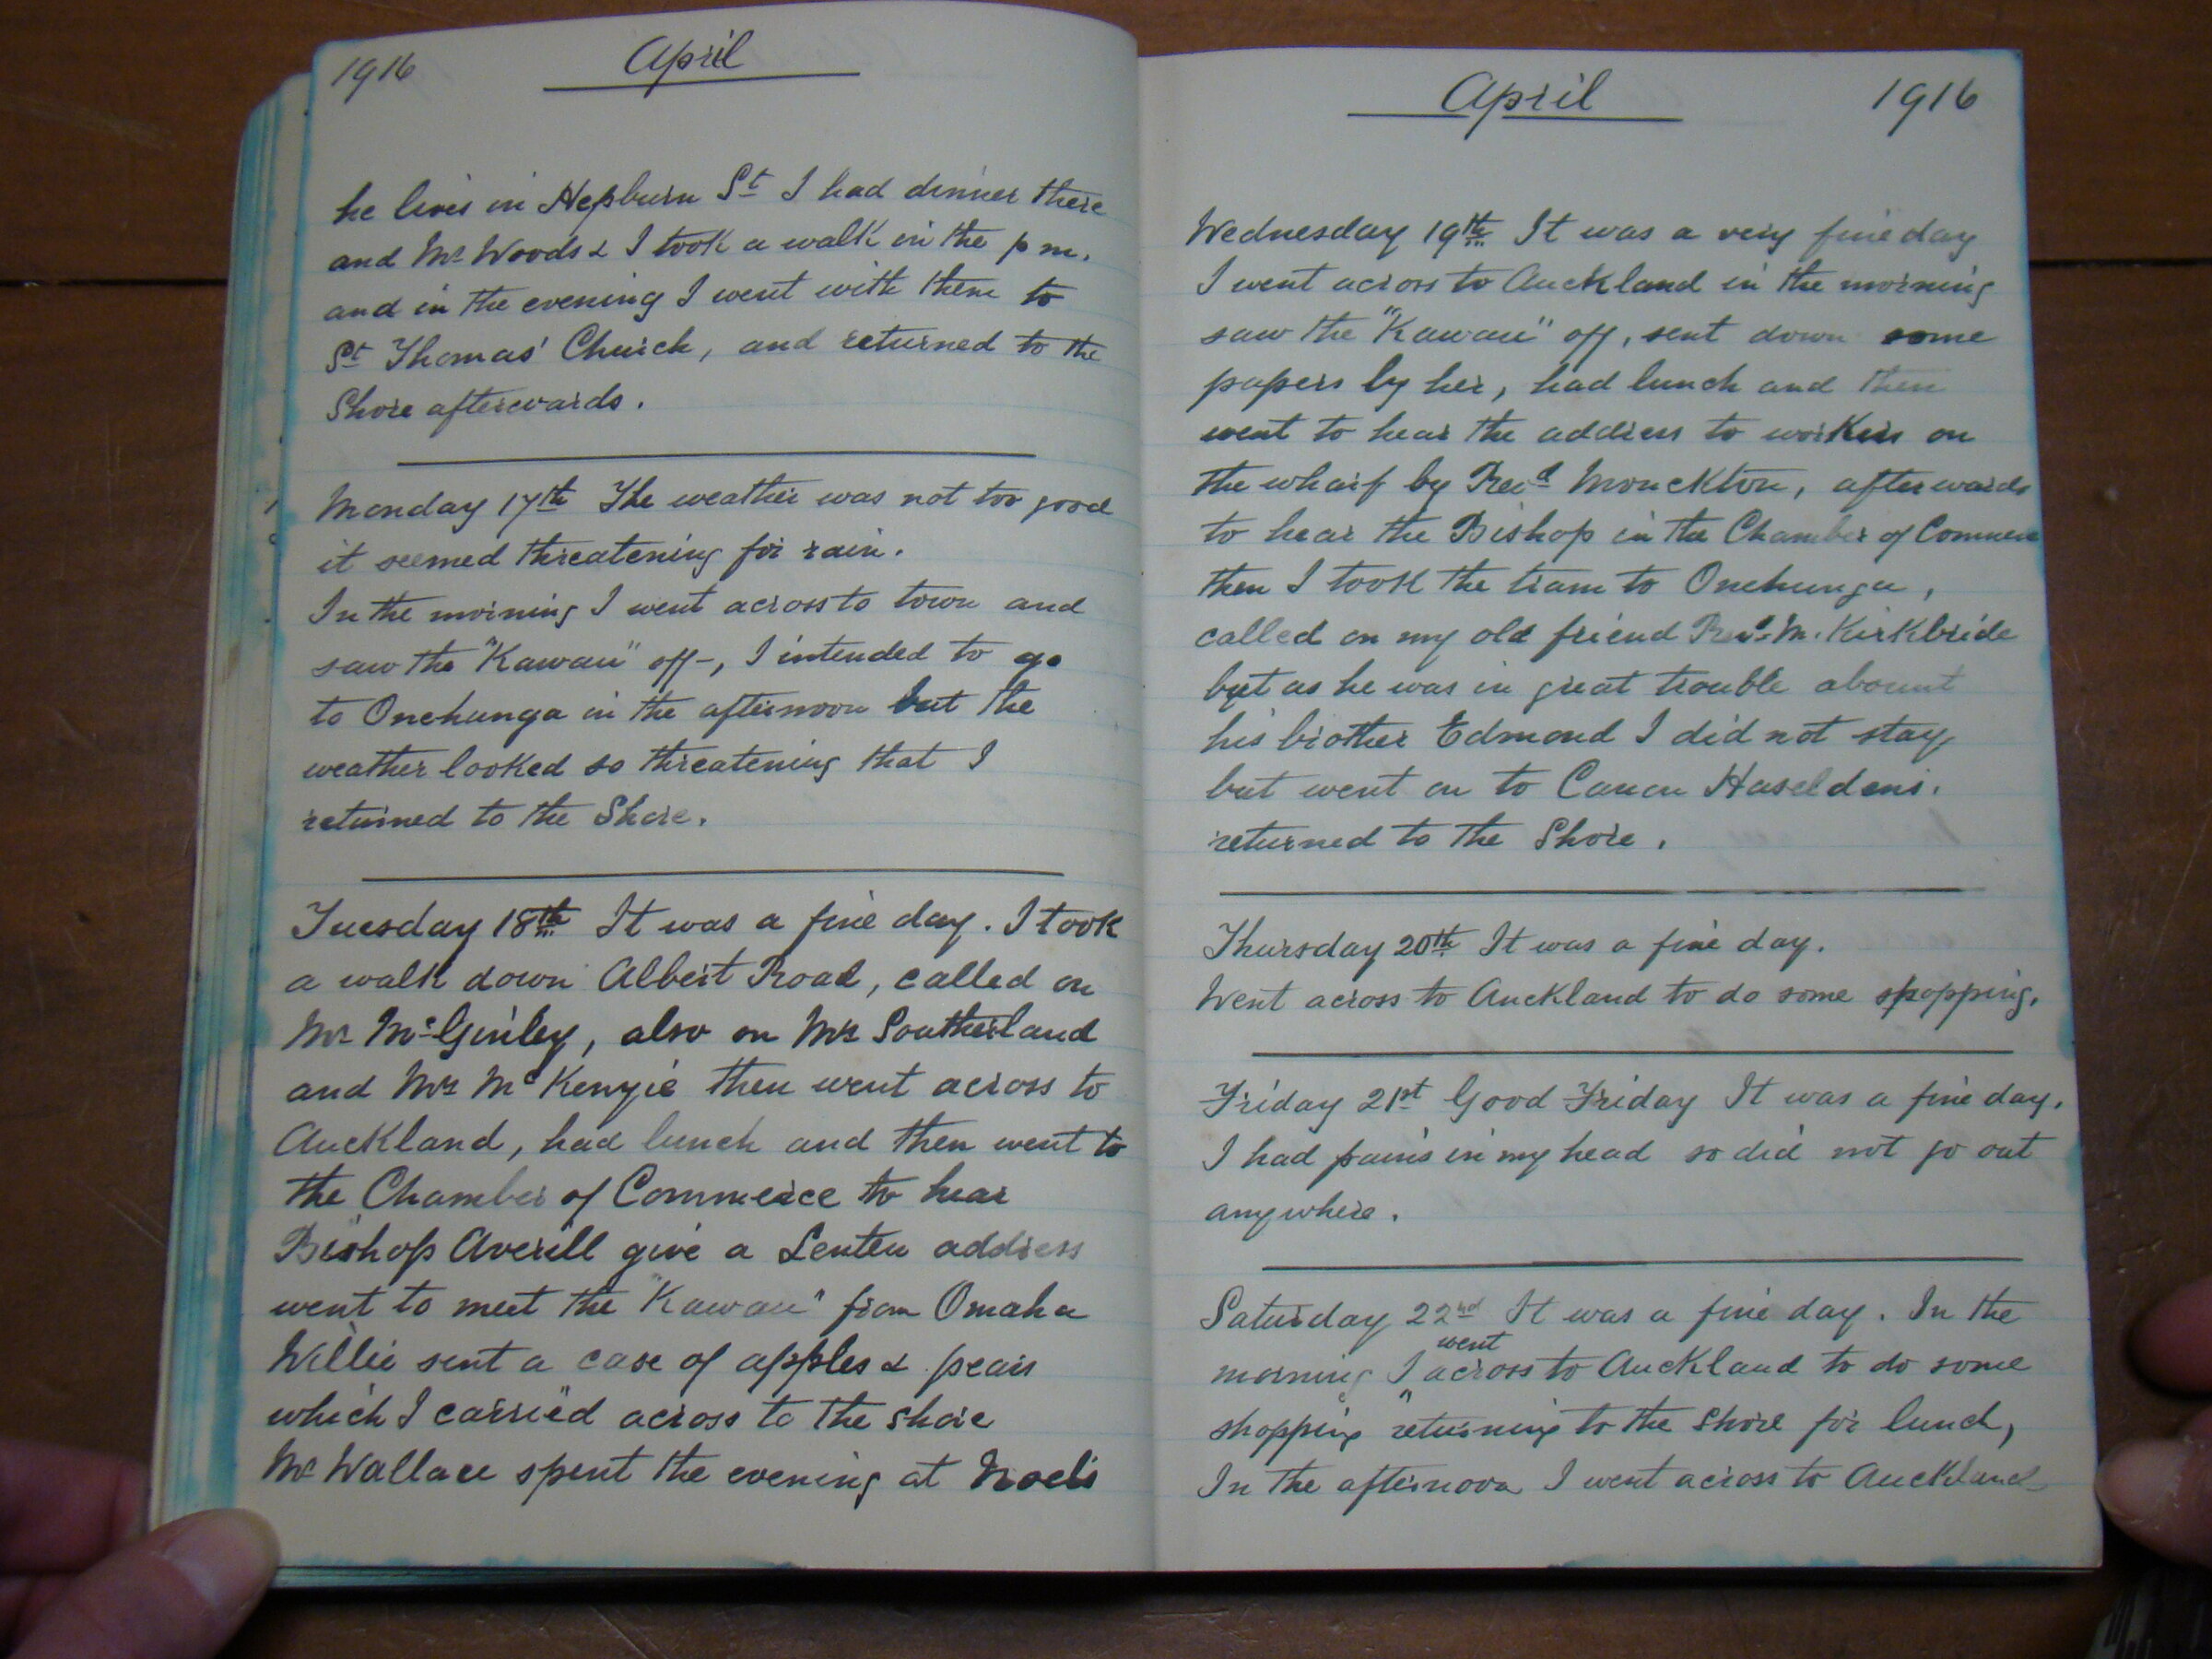 1916 April
he lives in Hepburn St I had dinner there
and Mr Woods & I took a walk in the p m.
and in the evening I went with them to
St Thomas' Church, and returned to the
Shore afterwards.
Monday 17th The weather was not too good
it seemed threatening for rain.
In the morning I went across to town and
saw the "Kawau" off-, I intended to go
to Onehunga in the afternoon but the
weather looked so threatening that I
returned to the Shore.
Tuesday 18th It was a fine day. I took
a walk down Albert Road, called on
Mr McGinley, also on Mrs Southerland
and Mrs McKenzie then went across to
Auckland, had lunch and then went to
the Chamber of Commerce to hear
Bishop Averill give a Lenten address
went to meet the "Kawau" from Omaha
Willie sent a case of apples & pears
which I carried across to the shore
Mr Wallace spent the evening at Noel's
April 1916
Wednesday 19th It was a very fine day
I went across to Auckland in the morning
saw the "Kawau" off, sent down some
papers by her, had lunch and then
went to hear the address to workers on
the wharf by Revd Monckton, afterwards
to hear the Bishop in the Chamber of Commerce
then I took the tram to Onehunga,
called on my old friend Revd M. Kirkbride
but as he was in great trouble abount
his brother Edmond I did not stay
but went on to Canon Haseldens.
returned to the Shore.
Thursday 20th It was a fine day.
Went across to Auckland to do some shopping.
Friday 21st Good Friday It was a fine day.
I had pains in my head so did not go out
anywhere.
Saturday 22nd It was a fine day. In the
morning I went across to Auckland to do some
shopping returning to the shore for lunch,
In the afternoon I went across to Auckland